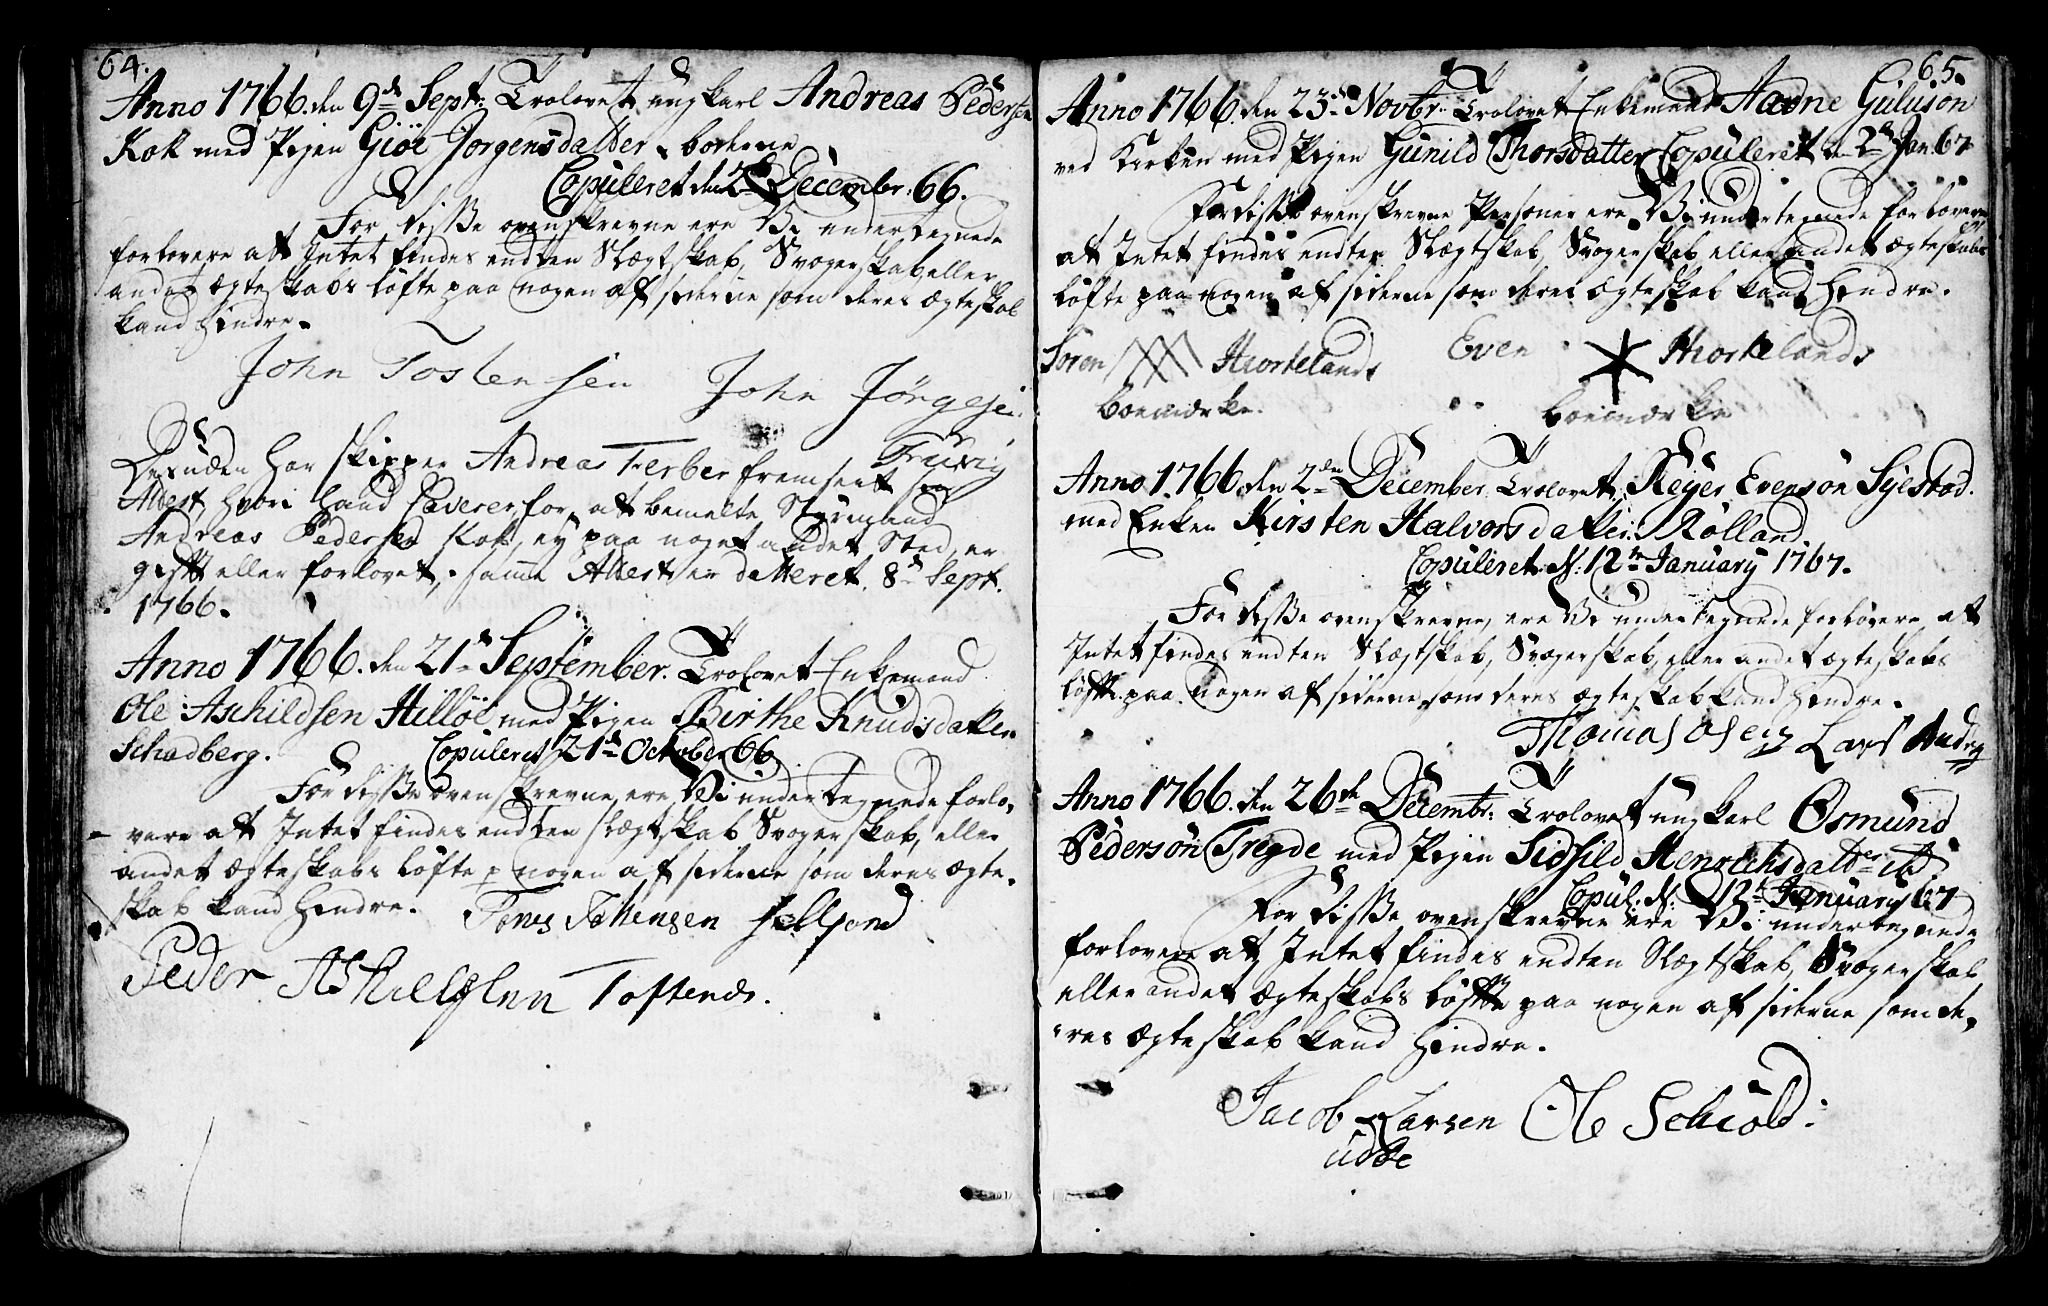 64.
Anno 1766. den 9de Sept: Trolovet ungkarl Andreas Pedersen
Kok med Pigen Giøe Jorgensdatter
Copuleret den 2 Decembr: 66.
For disse ovenskrevne ere Vi undertegnede
forlovere at Intet findes endten Slegtskab, Svogerskab eller
andet Ægteskabs løfte paa nogen af siderne som deres Ægteskab
kand hindre.
John Tostensen John Jörgesen
Truwig
Desuden har skipper Andreas Ferber fremsent sin
Attest, hvori hand Caverer for, at bemelte Styrmand
Andreas Pedersen Kok, ey paa noget andet Sted, er
gift eller forlovet, samme Attest er datteret 8de Sept.
1766.
Anno 1766. den 21de September. Trolovet Enkemand
Ole Aschildsen Hilløe med Pigen Birthe Knudsdatter
Schadberg. Copuleret 21de October 66
For disse ovenskrevne ere Vi undertegnede forlo-
vere at Intet findes endten slegtskab Svogerskab, eller
andet Ægteskabs løfte p nogen af siderne som deres Ægte-
skab kand hindre. Tønes Tohensen
Peder Tofteneds.
65.
Anno 1766. den 23de Novbr: Trolovet Enkemand Aadne Guluson
ved Kirken med Pigen Gunild Thorsdatter Copuleret den 2de Jan: 67
For disse ovenskrevne Personer ere Vi undertegnede forlovere
at Intet findes endten Slegtskab, Svogerskab eller andet Ægteskabs
løfte paa nogen af siderne som deres Ægteskab kand hindre.
Soren Hiortelands Even Hiortelands
boemærke. boemærke
Anno 1766. den 2den December Trolovet Reyer Evensøn Syestad.
med Enken Kirsten Halvorsdatter Rölland
Copuleret d: 12te January 1767.
For disse ovenskrevne, ere Vi undertegnede forlovere at
Intet findes endten Slegtskab, Svogerskab, eller andet Ægteskabs
løfte paa Nogen af siderne som deres Ægteskab kand hindre.
Thomas Osen Lars
Anno 1766. den 26de Decembr: Trolovet ungkarl Osmund
Pedersøn Tregde med Pigen Sidsild Henrichsdatter ib
Copul: d: 12te January 67
For disse ovenskrevne ere Vi undertegnede
forlovere at Intet findes endten Slegtskab, Svogerskab
eller andet Ægteskabs løfte paa nogen af siderne som de-
res Ægteskab kand hindre.
Jacob Larsen Ole Schiöld: